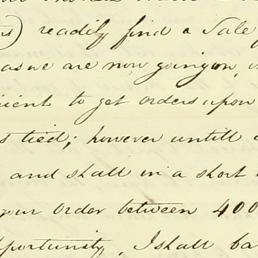 readily find a Sale
as we are now going on,
to get orders upon
tied; however untill
and shall in a short
your Order between 400
opportunity, I shall